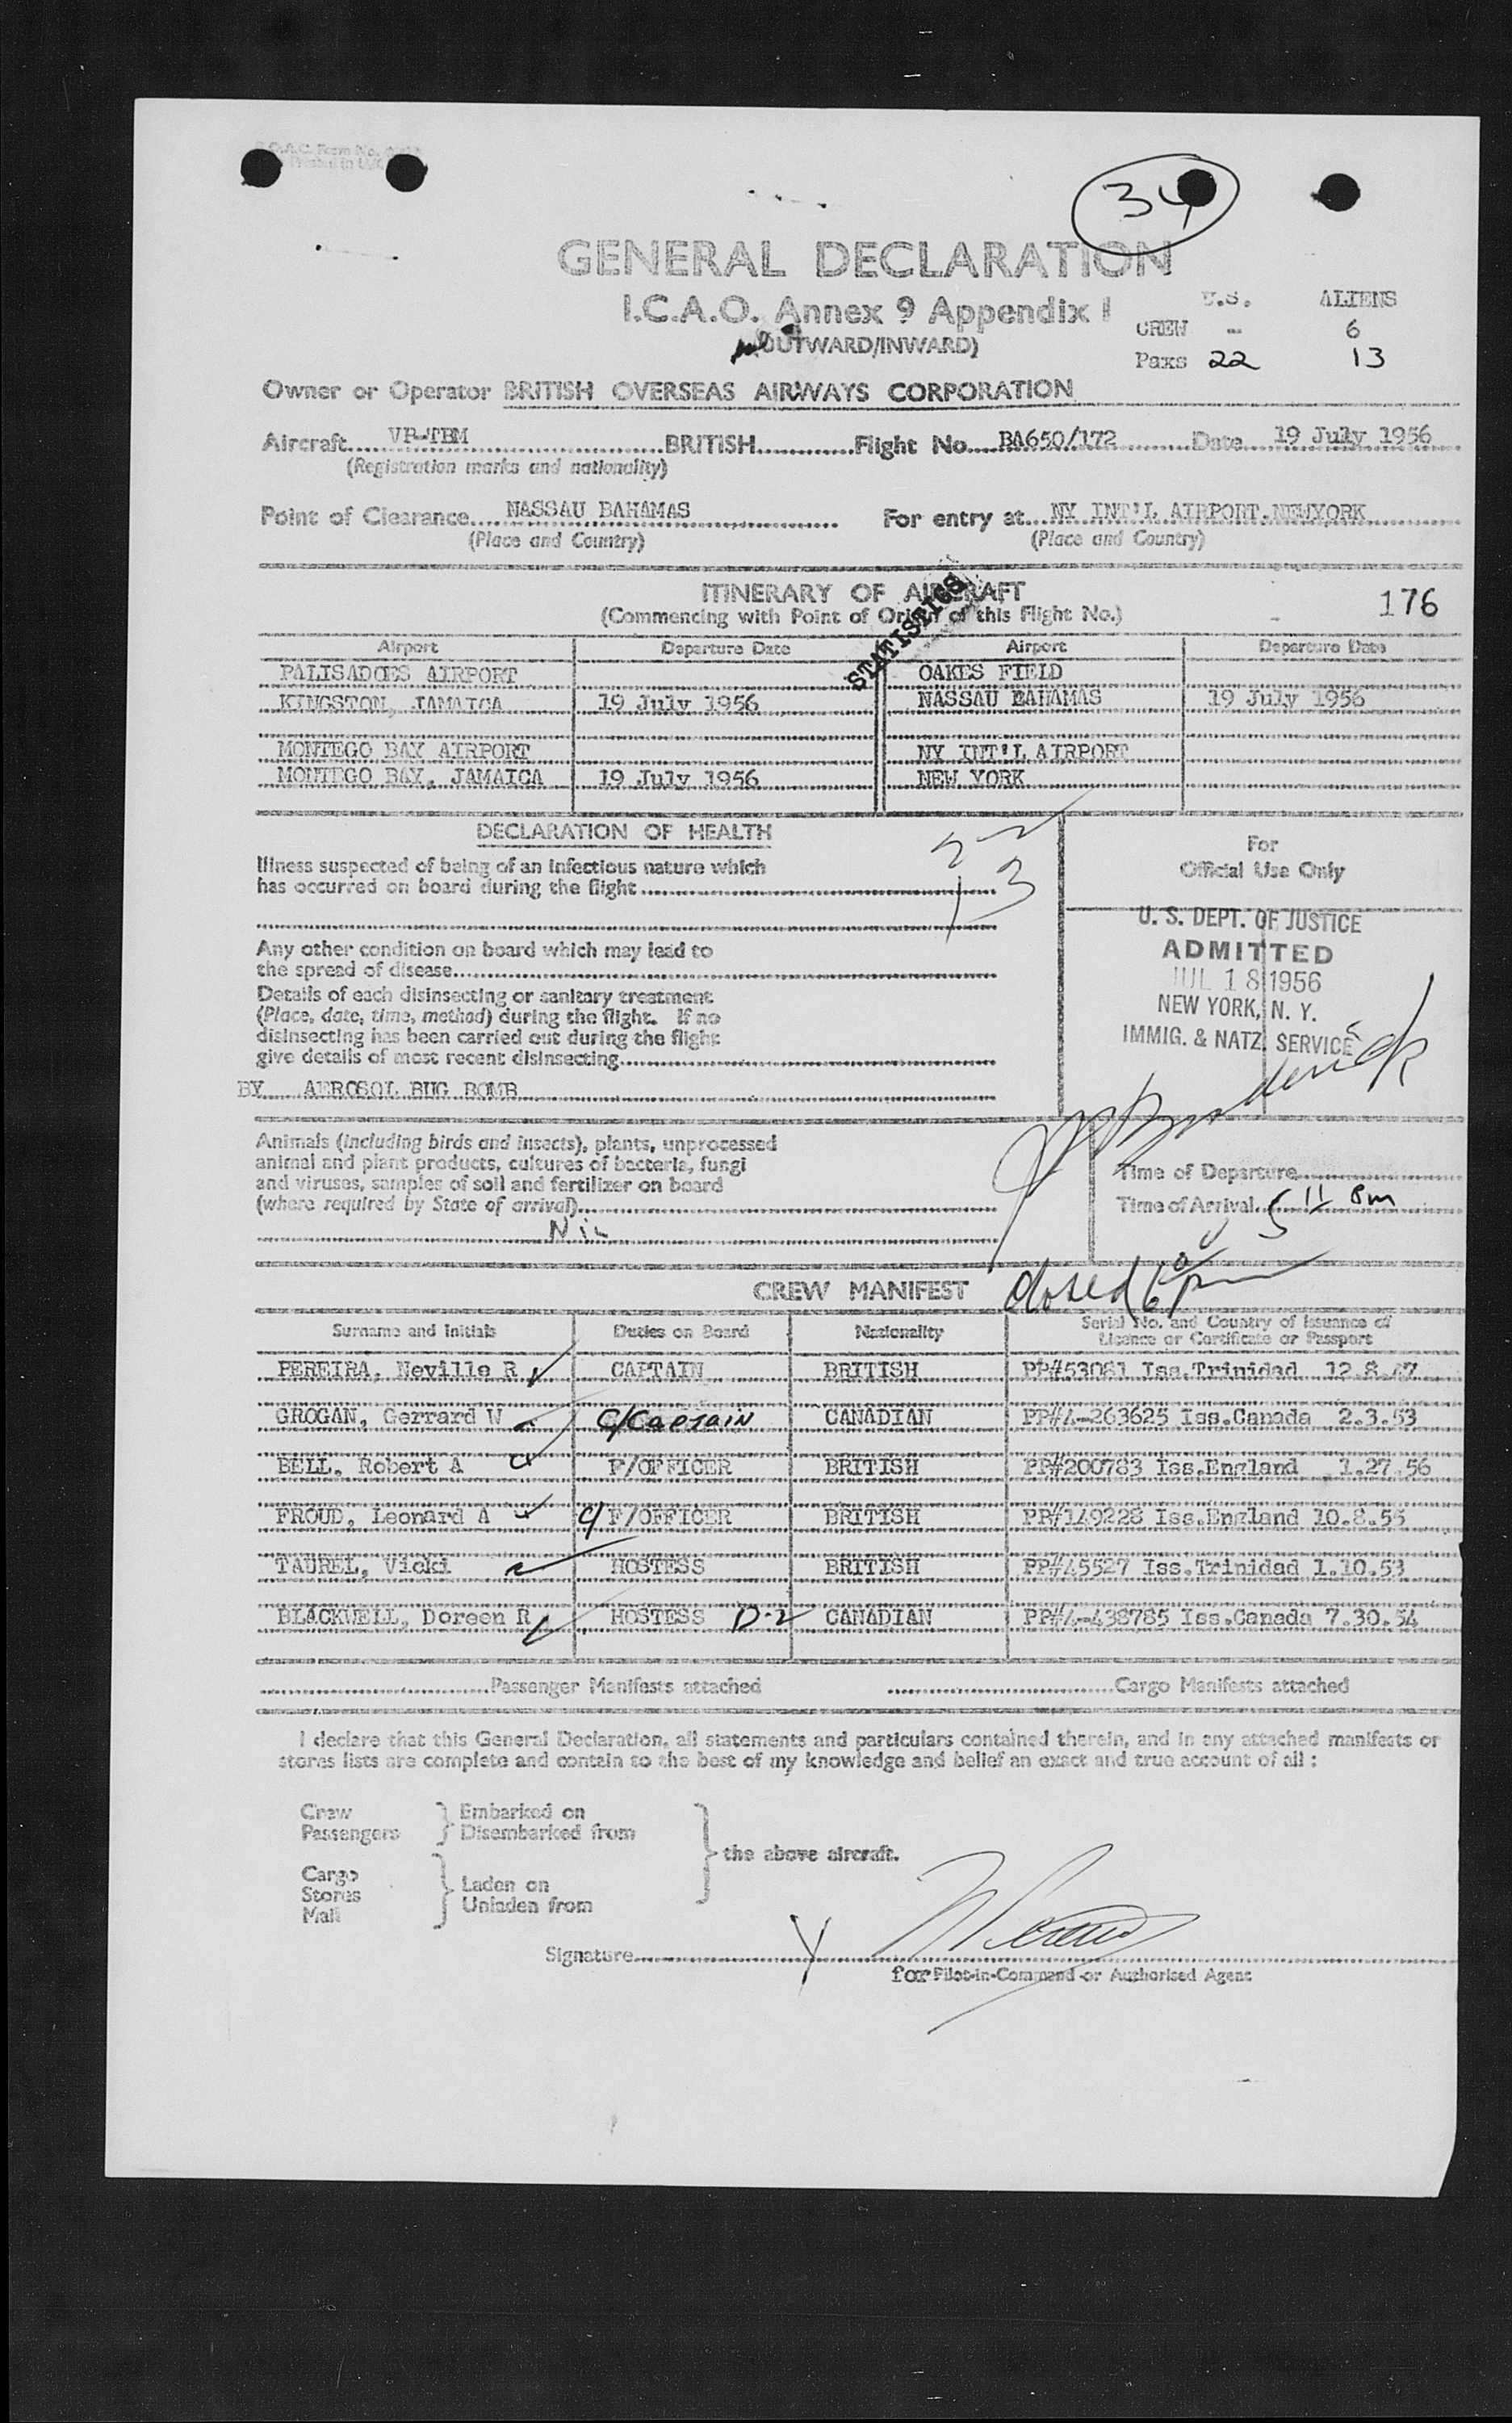 34
GENERAL DECLARATION
I.C.A.O. Annex 9 Appendix I
(OUTWARD/INWARD)
U.S. ALIENS
CREW - 6
Paxs 22 13
Owner or Operator BRITISH OVERSEAS AIRWAYS CORPORATION
Aircraft VP-TBM BRITISH Flight No. BA650/172 Date 19 July 1956
(Registration marks and nationality)
Point of Clearance NASSAU BAHAMAS For entry at NY INT'L AIRPORT.NEWYORK
(Place and Country) (Place and Country)
ITINERARY OF AIRCRAFT
(Commencing with Point of Origin of this Flight No.)
STATISTICS
176
Airport Departure Date Airport Departure Date
PALISADOES AIRPORT OAKES FIELD
KINGSTON, JAMAICA 19 July 1956 NASSAU BAHAMAS 19 July 1956
MONTEGO BAY AIRPORT NY INT'L AIRPORT
MONTEGO BAY, JAMAICA 19 July 1956 NEW YORK
DECLARATION OF HEALTH
22
13
Illness suspected of being of an infectious nature which
has occurred on board during the flight
Any other condition on board which may lead to
the spread of disease
Details of each disinsecting or sanitary treatment
(Place, date, time, method) during the flight. If no
disinsecting has been carried out during the flight
give details of most recent disinsecting
BY AEROSOL BUG BOMB
For
Official Use Only
U. S. DEPT. OF JUSTICE
ADMITTED
JUL 18 1956
NEW YORK, N. Y.
IMMIG. & NATZ. SERVICE
Animals (including birds and insects), plants, unprocessed
animal and plant products, cultures of bacteria, fungi
and viruses, samples of soil and fertilizer on board
(where required by State of arrival)
Nil
Time of Departure
Time of Arrival 5 11 Pm
CREW MANIFEST
closed 6 00 pm
Surname and Initials Duties on Board Nationality Serial No. and Country of Issuance of
Licence or Certificate or Passport
PEREIRA, Neville R CAPTAIN BRITISH PP#53081 Iss.Trinidad 12.8.47
GROGAN, Gerrard W C/Captain CANADIAN PP#4-263625 Iss.Canada 2.3.53
BELL, Robert A F/OFFICER BRITISH PP#200783 Iss.England 1.27.56
FROUD, Leonard A C/ F/OFFICER BRITISH PP#149228 Iss.England 10.8.55
TAUREL, Vicki HOSTESS BRITISH PP#45527 Iss.Trinidad 1.10.53
BLACKWELL, Doreen R HOSTESS D-2 CANADIAN PP#4-438785 Iss.Canada 7.30.54
Passenger Manifests attached Cargo Manifests attached
I declare that this General Declaration, all statements and particulars contained therein, and in any attached manifests or
stores lists are complete and contain to the best of my knowledge and belief an exact and true account of all :
Crew Embarked on
Passengers Disembarked from
the above aircraft.
Cargo
Stores Laden on
Mail Unladen from
Signature
for Pilot-in-Command or Authorised Agent